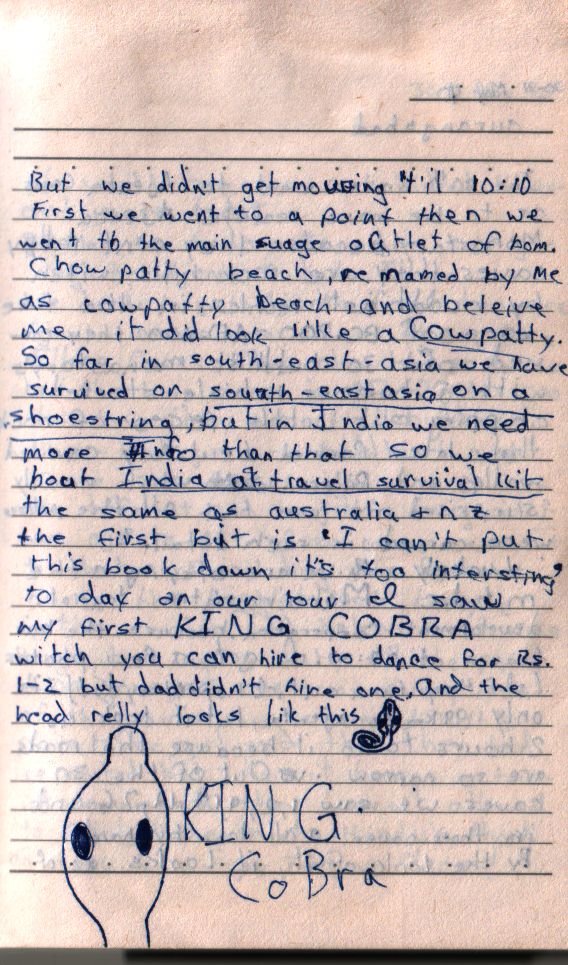 But we didn't get moving 't'il 10:10
First we went to a point then we
went to the main suage outlet of bom.
Chow patty beach, re named by me
as cowpatty beach, and beleive
me it did look like a Cowpatty.
So far in south-east-asia we have
survived on south-east asia on a
shoestring, but in India we need
more info than that so we
bout India a travel survival kit
the same as australia + nz
the first bit is "I can't put
this book down it's too intersting"
to day on our tour I saw
my first KING COBRA
witch you can hire to dance for Rs.
1-2 but dad didn't hire one, and the
head relly looks lik this
KING
CoBra